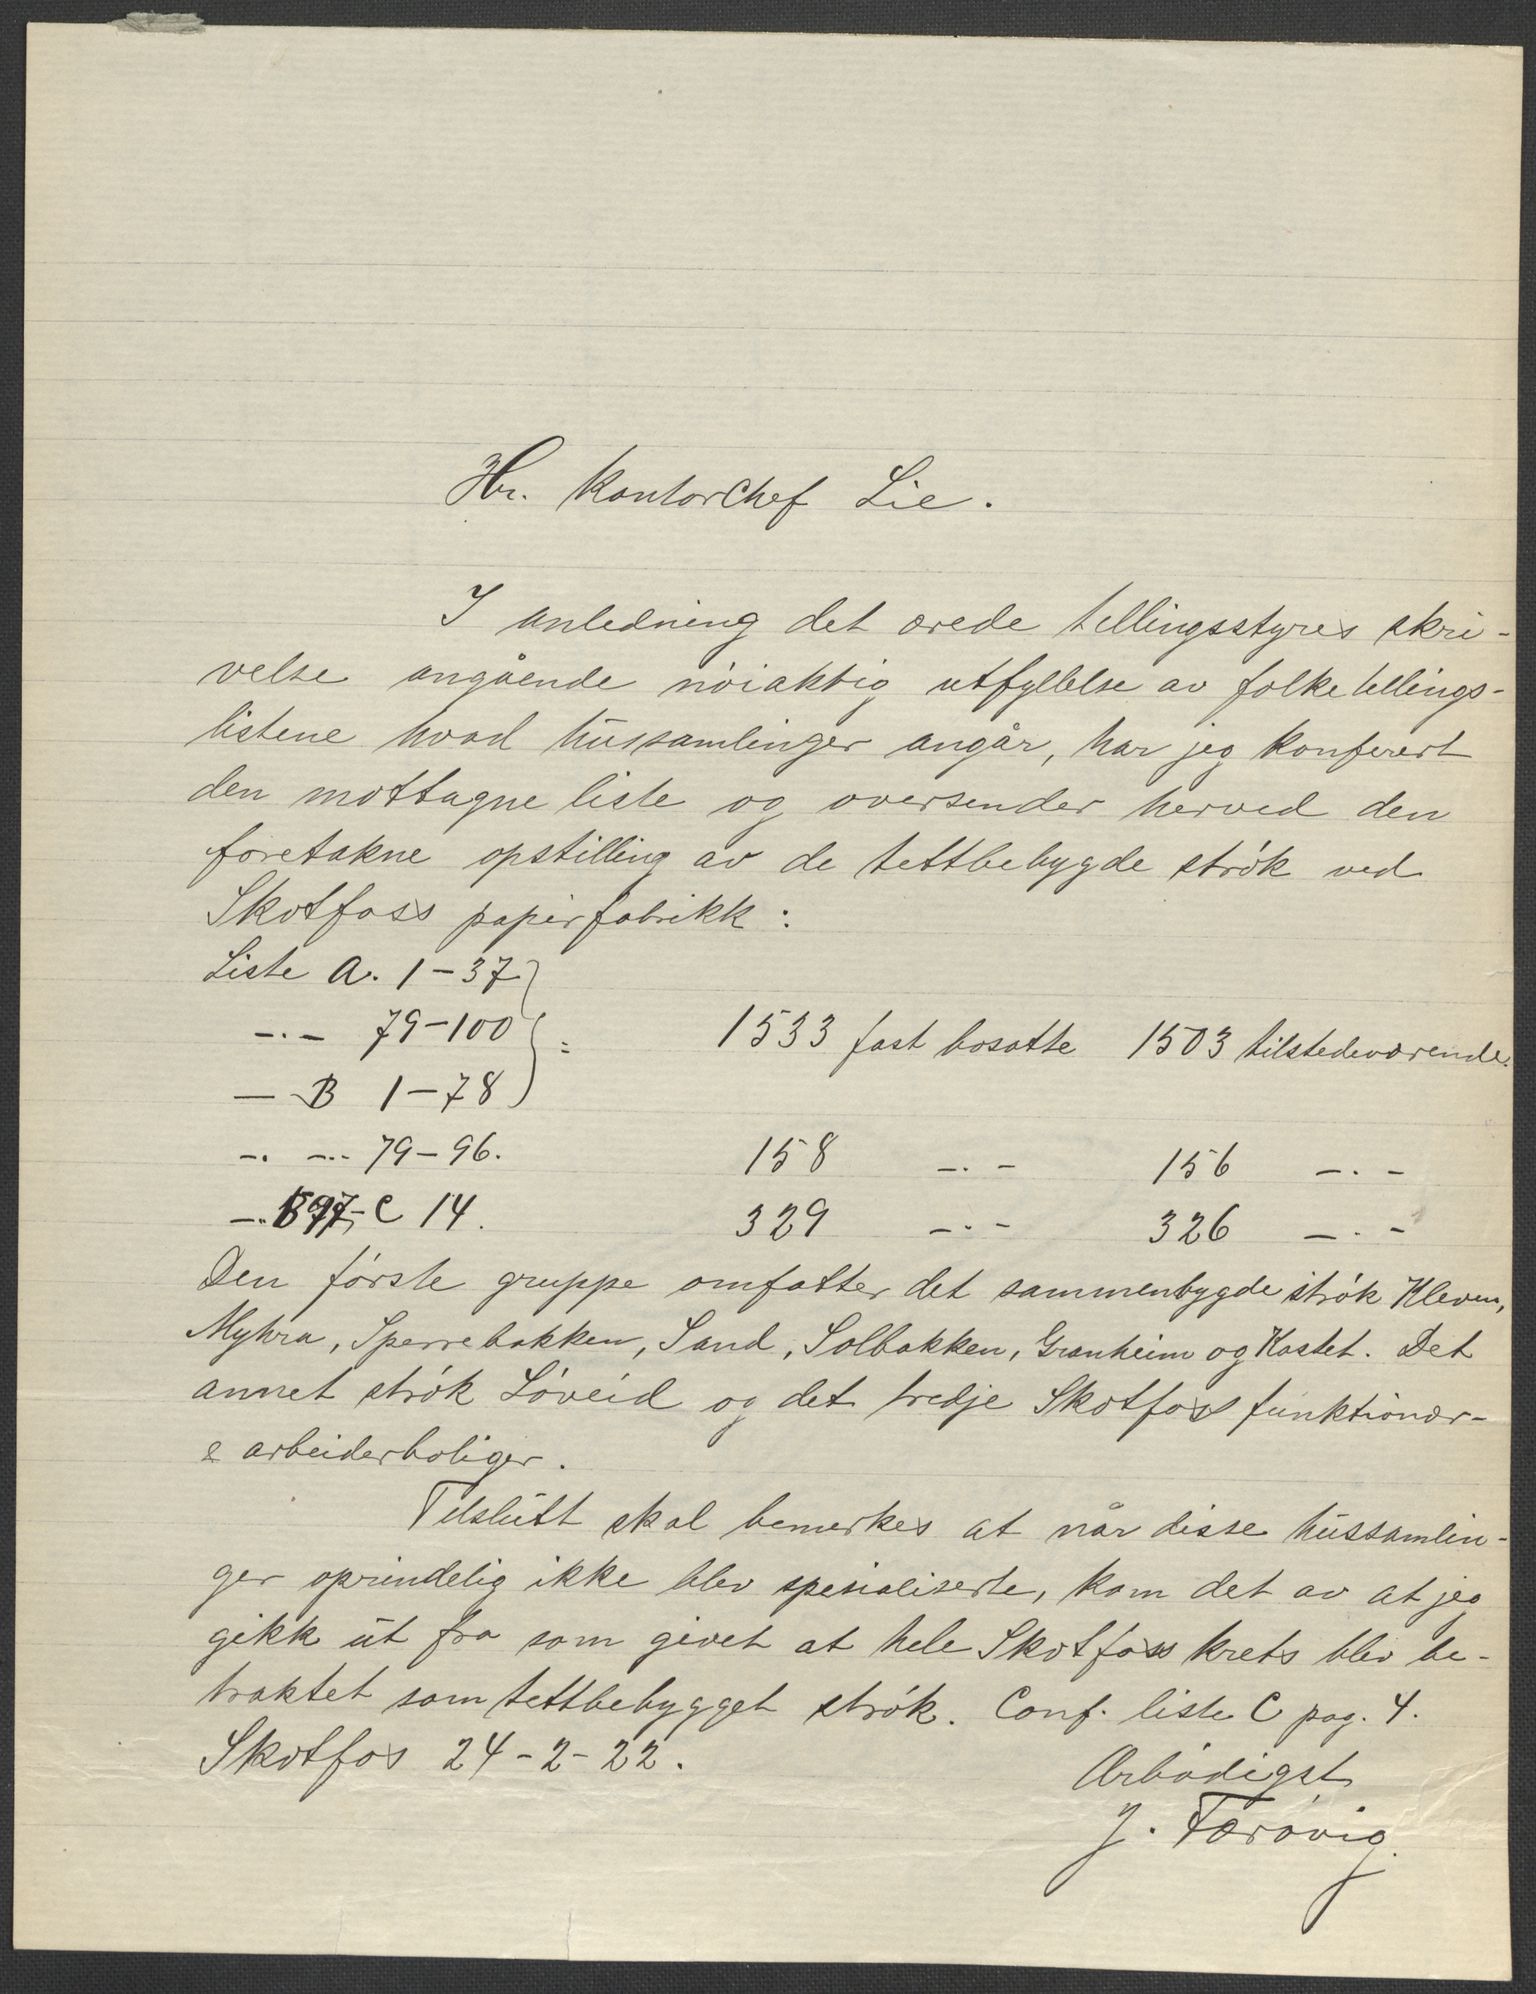 Hr. Kontorchef Lie.
I anledning det ærede tellingsstyres skri-
velse angående nöiaktig utfyllelse av folketellings-
listene hvad hussamlinger angår, har jeg konferert
den mottagne liste og oversender herved den
foretakne opstilling av de tettbebygde strök ved
Skotfoss papirfabrikk:
Liste A. 1-37
-.- 79-100 = 1533 fast bosatte 1503 tilstedeværende.
- B 1-78
-. -.- 79-96. 158 -.- 156 -.-
-. B 97-C 14. 329 -.- 326 -.-
Den förste gruppe omfatter det sammenbygde strök Kleven,
Myhra, Sperrebakken, Sand, Solbakken, Granheim og Kastet. Det
annet strök Löveid og det tredje Skotfoss funktionær-
& arbeiderboliger.
Tilslutt skal bemerkes at når disse hussamlin-
ger oprindelig ikke blev spesialiserte, kom det av at jeg
gikk ut fra som givet at hele Skotfoss krets blev be-
traktet som tettbebygget strök. Conf. liste C pag. 4.
Skotfos 24-2-22.
Ærbödigst
J. Færövig.